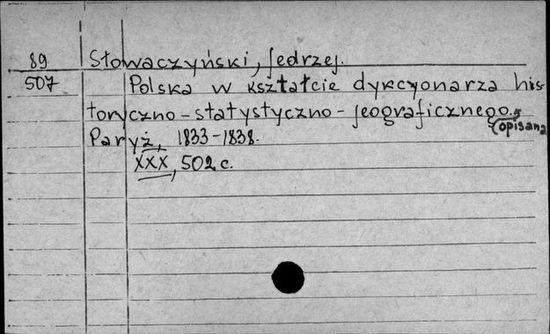 89 Słowaczyński, Jedrzej.
507 Polska w kształcie dykcyonarza his-
toryczno-statystyczno-jeograficznego
opisana
Paryż, 1833-1838.
XXX, 502 c.